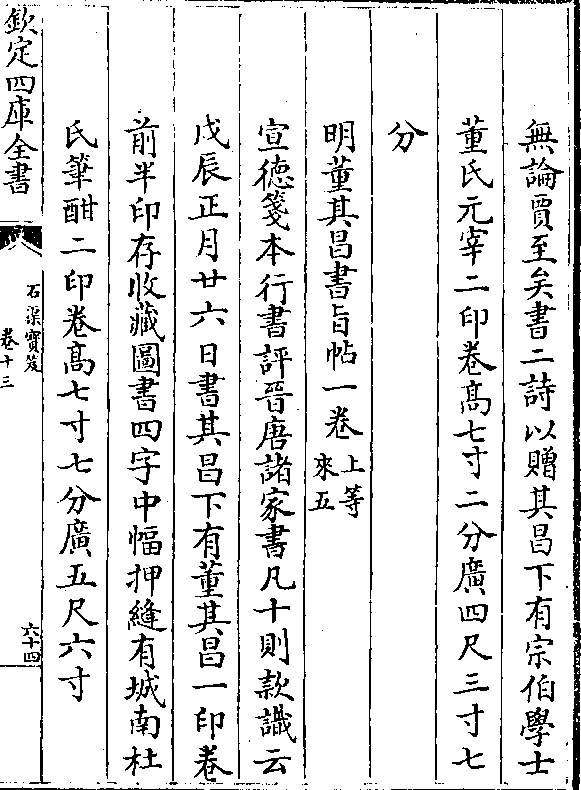 無論賈至矣書二詩以贈其昌下有宗伯學士
董氏元宰二印卷髙七寸二分廣四尺三寸七
分
明董其昌書旨帖一卷上等來五
宣德箋本行書評晉唐諸家書凡十則款識云
戊辰正月廿六日書其昌下有董其昌一印卷
前半印存收藏圖書四字中幅押縫有城南杜
氏筆酣二印卷髙七寸七分廣五尺六寸
欽定四庫全書
石渠寶笈
卷十三
六十四